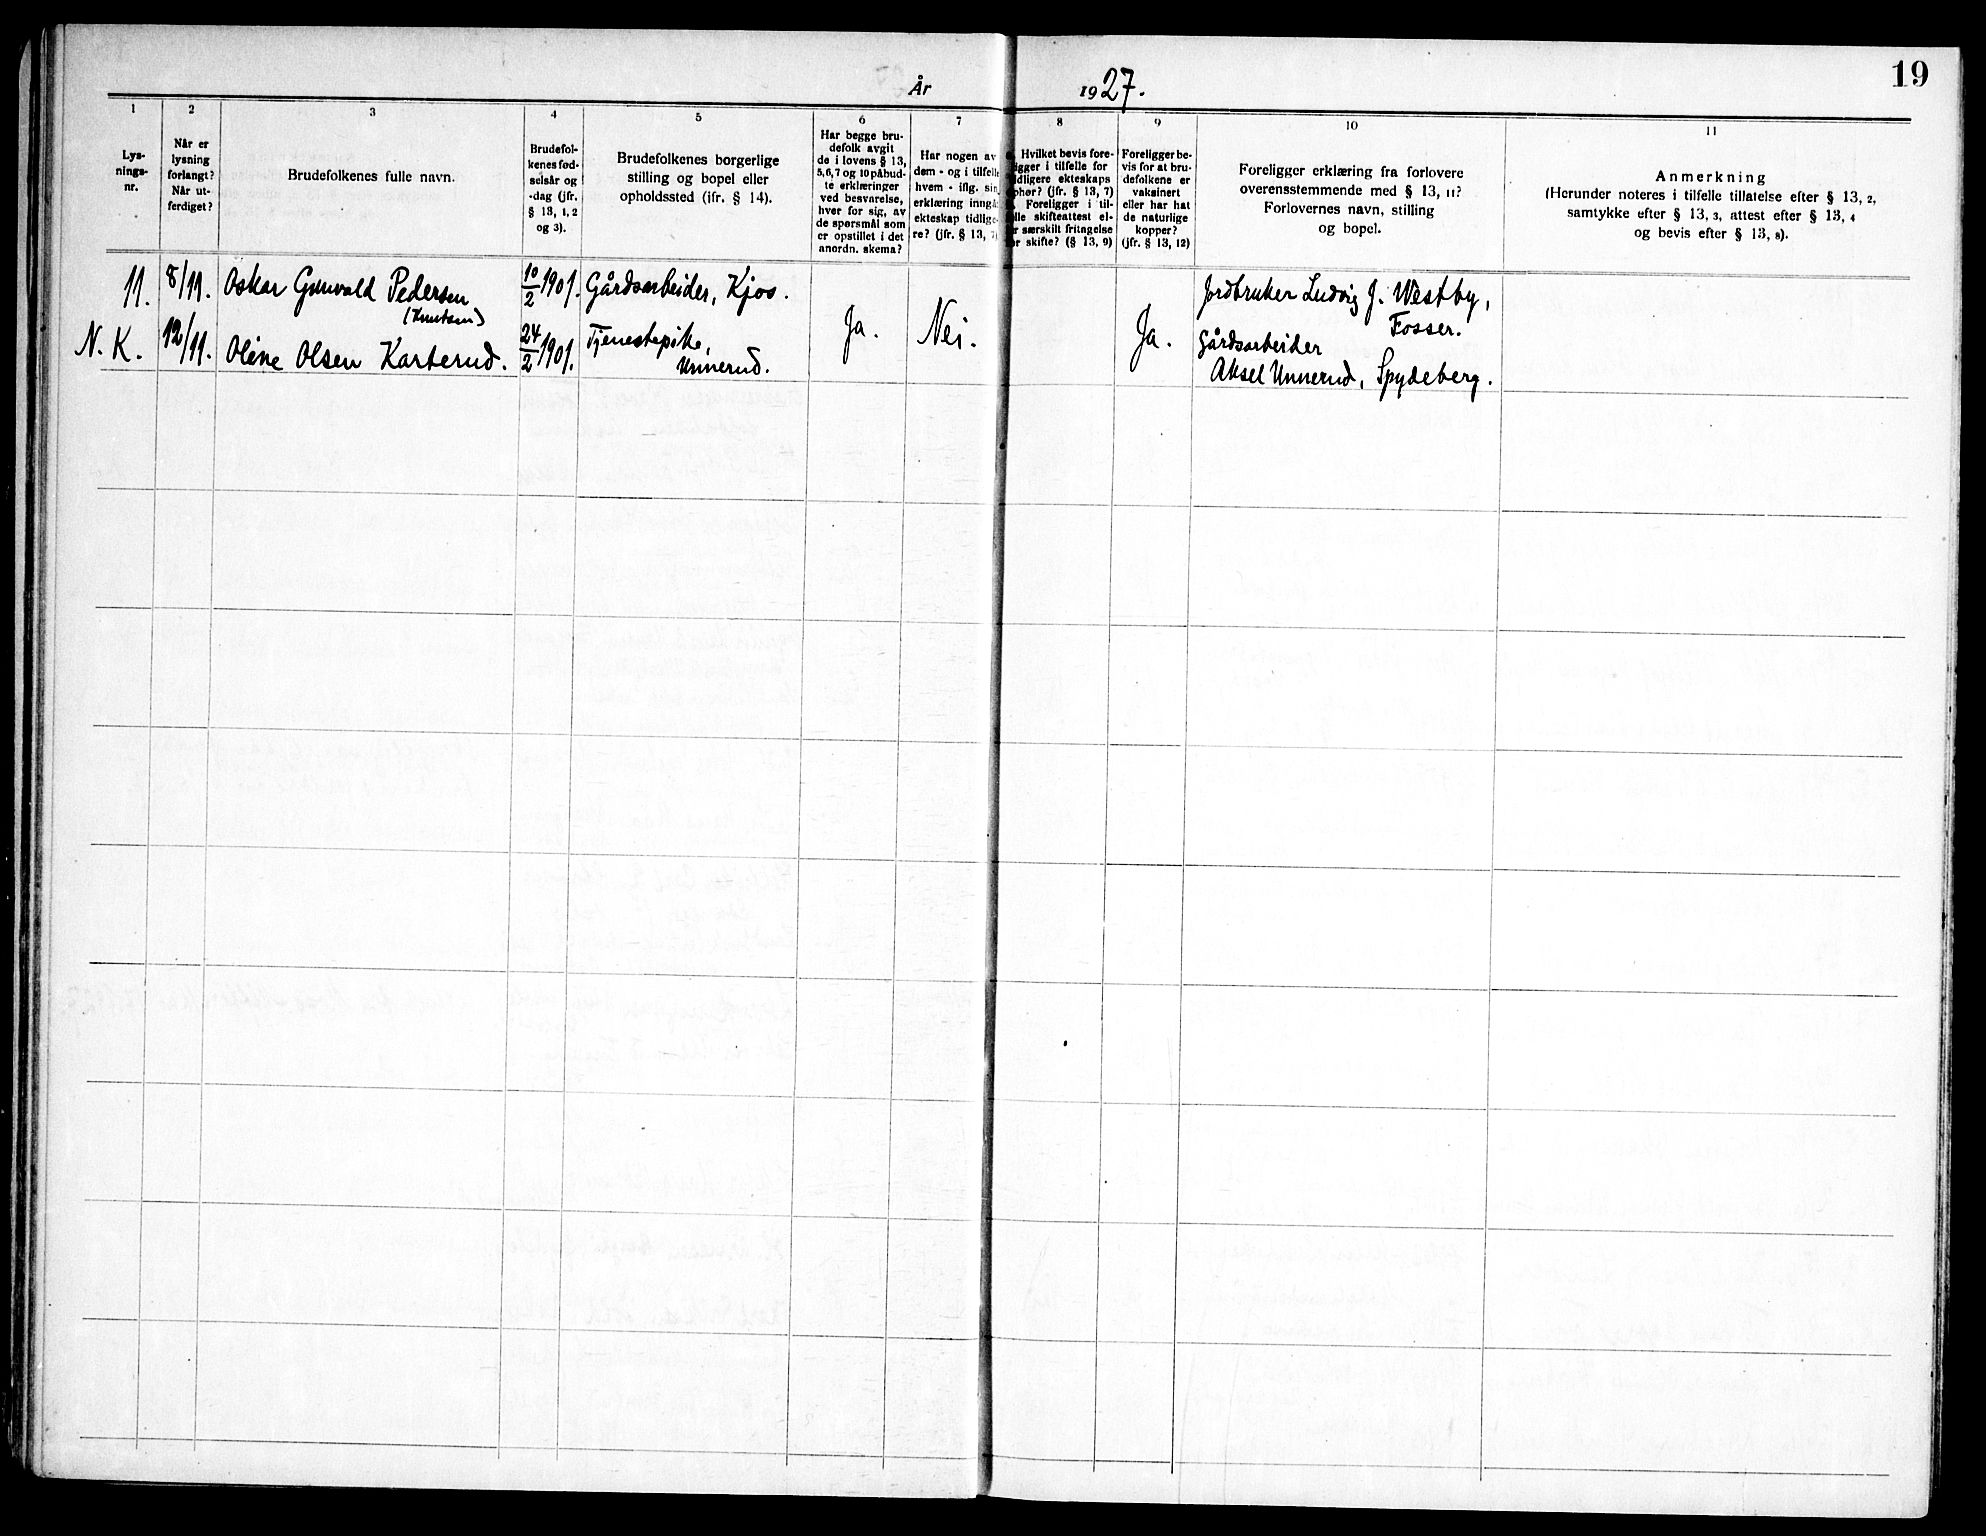 19
År 1927.
1
2
3
4
5
6
7
8
9
10
11
Lys-
nings-
nr.
Når er
lysning
forlangt?
Når ut-
ferdiget?
Brudefolkenes fulle navn.
Brudefol-
kenes fød-
selsår og
-dag (jfr.
§ 13, 1, 2
og 3).
Brudefolkenes borgerlige
stilling og bopel eller
opholdssted (jfr. § 14).
Har begge bru-
defolk avgit
de i lovens § 13,
5, 6, 7 og 10 påbud-
te erklæringer
ved besvarelse,
hver for sig, av
de spørsmål som
er opstillet i det
anordn. skema?
Har nogen av
dem - og i tilfelle
hvem - iflg. sin
erklæring inngå
ekteskap tidlige-
re? (jfr. § 13, 7)
Hvilket bevis fore-
igger i tilfelle for
idligere ekteskaps
phør? (jfr. § 13, 7)
Foreligger i til-
lle skifteattest el-
r særskilt fritagelse
or skifte? (§ 13, 9)
Foreligger be-
vis for at bru-
defolkene er
vaksinert
eller har hat
de naturlige
kopper?
(jfr. § 13, 12)
Foreligger erklæring fra forlovere
overensstemmende med § 13, 11?
Forlovernes navn, stilling
og bopel.
Anmerkning
(Herunder noteres i tilfelle tillatelse efter § 13, 2,
samtykke efter § 13, 3, attest efter § 13, 4
og bevis efter § 13, 8).
11.
N. K.
8/11.
12/11.
Oskar Grunvald Pedersen
(Knutsen)
Oline Olsen Karterud.
10/2 1901.
24/2 1901.
Gårdsarbeider, Kjos.
Tjenestepike,
Unnerud.
Ja.
Nei.
Ja.
Jordbruker Ludvig J. Westby,
Fosser.
Gårdsarbeider
Aksel Unnerud, Spydeberg.